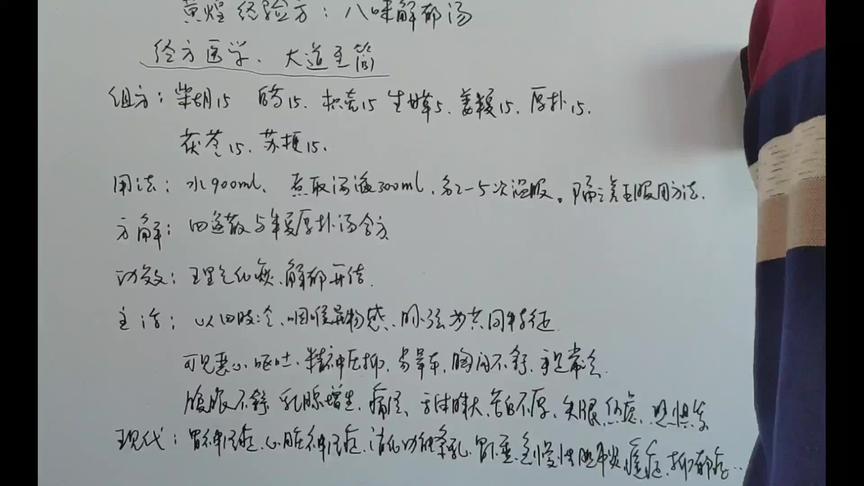 黄煌经验方：八味解郁汤
经方医学、大道至简
组方：柴胡15 白芍15、枳壳15 生甘草5、姜半夏15、厚朴15、
茯苓15、苏梗15、
用法：水900ml、煮取汤液300ml，分2-5次温服。隔 服用方法.
方解：四逆散与半夏厚朴汤合方
功效：理气化痰、解郁开结
主治：以四肢冷、咽喉异物感、脉弦为共同特征
可见恶心、呕吐、精神压抑、易晕车、胸闷不舒、手足常冷
腹胀不舒、乳腺增生、痛经、舌体 大、苔白不厚、失眠、焦虑、恐惧等
现代：胃神经症、心脏神经症、消化功能紊乱、胃下垂、急慢性 炎、癔症、抑郁症…